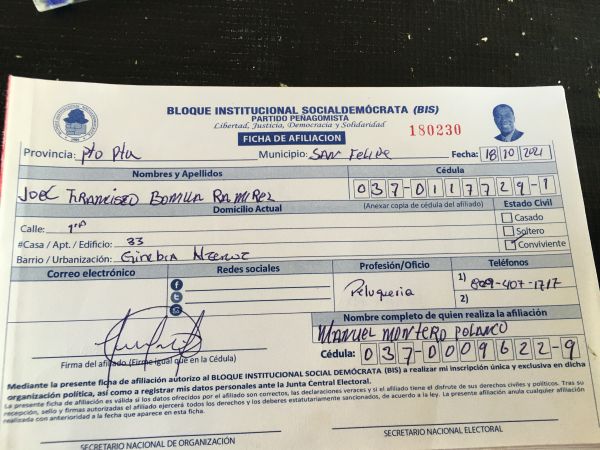 BLOQUE INSTITUCIONAL SOCIALDEMÓCRATA (BIS)
PARTIDO PEÑAGOMISTA
Libertad, Justicia, Democracia y Solidaridad
FICHA DE AFILIACION
180230
Provincia: Pto Pta Municipio: SAN Felipe Fecha: 18 10 2021
Nombres y Apellidos Cédula
JOEL FRANCISCO BONILLA RAMIREZ 037-0117729-1
Domicilio Actual (Anexar copia de cédula del afiliado) Estado Civil
Calle: 1ra Casado
#Casa / Apt. / Edificio: 33 Soltero
Barrio / Urbanización: Ginebra Conviviente
Correo electrónico Redes sociales Profesión/Oficio Teléfonos
Peluqueria 1) 809-407-1717
2)
Nombre completo de quien realiza la afiliación
MANUEL MONTERO POLANCO
Firma del afiliado (Firme igual que en la Cédula) Cédula: 037-0009622-9
Mediante la presente ficha de afiliación autorizo al BLOQUE INSTITUCIONAL SOCIAL DEMÓCRATA (BIS) a realizar mi inscripción única y exclusiva en dicha
organización política, así como a registrar mis datos personales ante la Junta Central Electoral.
La presente ficha de afiliación es válida si los datos ofrecidos por el afiliado son correctos, las declaraciones veraces y si el afiliado tiene el disfrute de sus derechos civiles y políticos. Tras su
recepción, sello y firmas autorizadas el afiliado ejercerá todos los derechos y los deberes estatutariamente sancionados, de acuerdo a la ley. La presente afiliación anula cualquier afiliación
realizada con anterioridad a la fecha que aparece en esta ficha.
SECRETARIO NACIONAL DE ORGANIZACIÓN SECRETARIO NACIONAL ELECTORAL